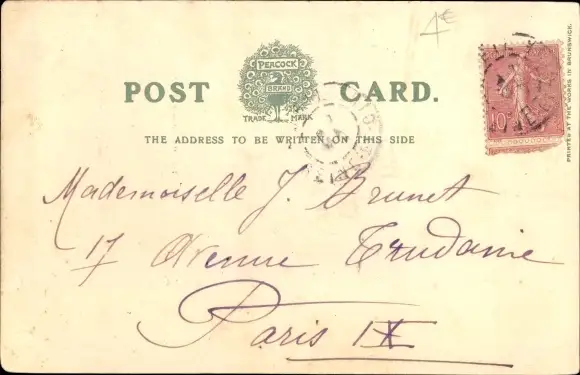 4€
POST CARD.
PEACOCK
BRAND
TRADE MARK
THE ADDRESS TO BE WRITTEN ON THIS SIDE
10
PRINTED AT THE WORKS IN BRUNSWICK.
Mademoiselle J. Brunet
17 Avenue Trudaine
Paris IX